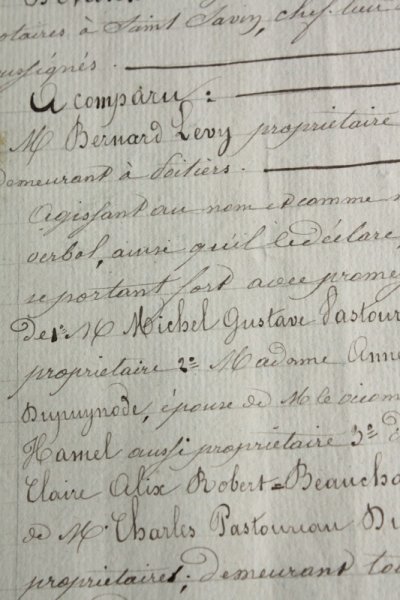 notaires à Saint Savin, chef lieu d
oussignés.
A comparu:
M Bernard Levy propriétaire
demeurant à Poitiers.
Agissant au nom et comme
verbal, ainsi qu'il le déclare,
se portant fort avec prome
de 1º M Michel Gustave Pastour
propriétaire 2º Madame Anne
Dupuynode, épouse de M le vicom
Hamel aussi propriétaire 3º
Claire Alix Robert-Beaucha
de M. Charles Pastoureau Du
propriétaires, demeurant tou